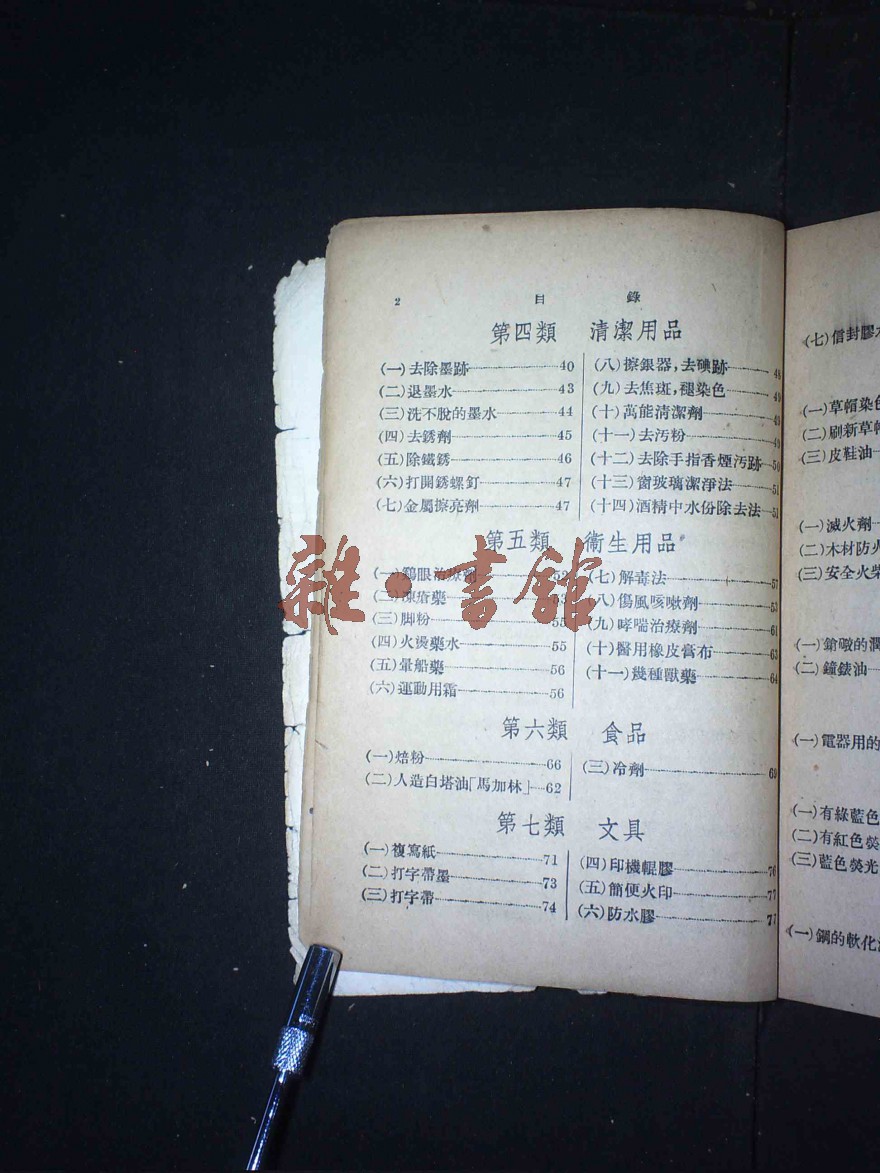 2 目 錄
第四類 清潔用品
(一)去除墨跡 40
(二)退墨水 43
(三)洗不脫的墨水 44
(四)去銹劑 45
(五)除鐵銹 46
(六)打開銹螺釘 47
(七)金屬擦亮劑 47
(八)擦銀器,去碘跡 48
(九)去焦斑,褪染色 49
(十)萬能清潔劑 49
(十一)去污粉 49
(十二)去除手指香煙污跡 50
(十三)窗玻璃潔淨法 51
(十四)酒精中水份除去法 51
第五類 衞生用品
(一)鷄眼治療劑
(二)凍瘡藥 53
(三)脚粉 55
(四)火燙藥水 55
(五)暈船藥 56
(六)運動用霜 56
(七)解毒法 57
(八)傷風咳嗽劑 53
(九)哮喘治療劑 61
(十)醫用橡皮膏布 63
(十一)幾種獸藥 64
第六類 食品
(一)焙粉 66
(二)人造白塔油「馬加林」 62
(三)冷劑 69
第七類 文具
(一)複寫紙 71
(二)打字帶墨 73
(三)打字帶 74
(四)印機輥膠 76
(五)簡便火印 77
(六)防水膠 77
雜·書館
(七)信封膠
(一)草帽染色
(二)刷新草帽
(三)皮鞋油
(一)滅火劑
(二)木材防火
(三)安全火柴
(一)鎗礮的潤
(二)鐘錶油
(一)電器用的
(一)有綠藍色
(二)有紅色熒
(三)藍色熒光
(一)鋼的軟化